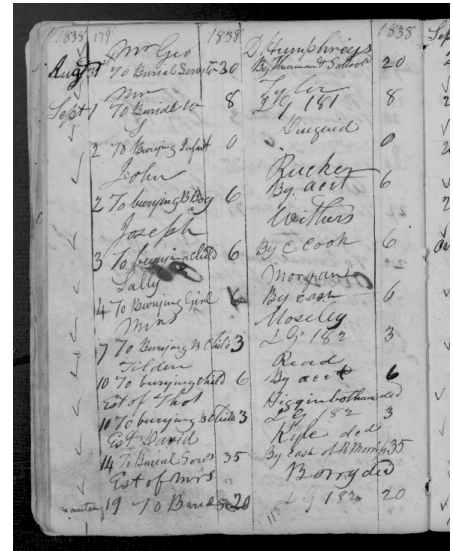 1838 179 1838 1838
Mr Geo D Humphreys
Augt 31 To Burial Serv 30 By Thurman & School 20
Mr
Sept 1 To Buride 8 L G 181 8
Duiguid
2 To Burying Infant 0 0
John Rucker
2 To burying B Boy 6 By acct 6
Joseph Withers
3 To burying child 6 By C Cook 6
Sally Morgan
4 To Burying Girl 6 By cash 6
Mrs Moseley
7 To Burying B Child 3 L G 182 3
Tilden Read
10 To burying child 6 By acct 6
Est of Thos Higginbotham ded
10 To burying B Child 3 L G 182 3
Est David Kyle ded
14 To Burial Serv 35 By cash of 35
Est of Mrs ded
19 To Buride 20 L G 182 20